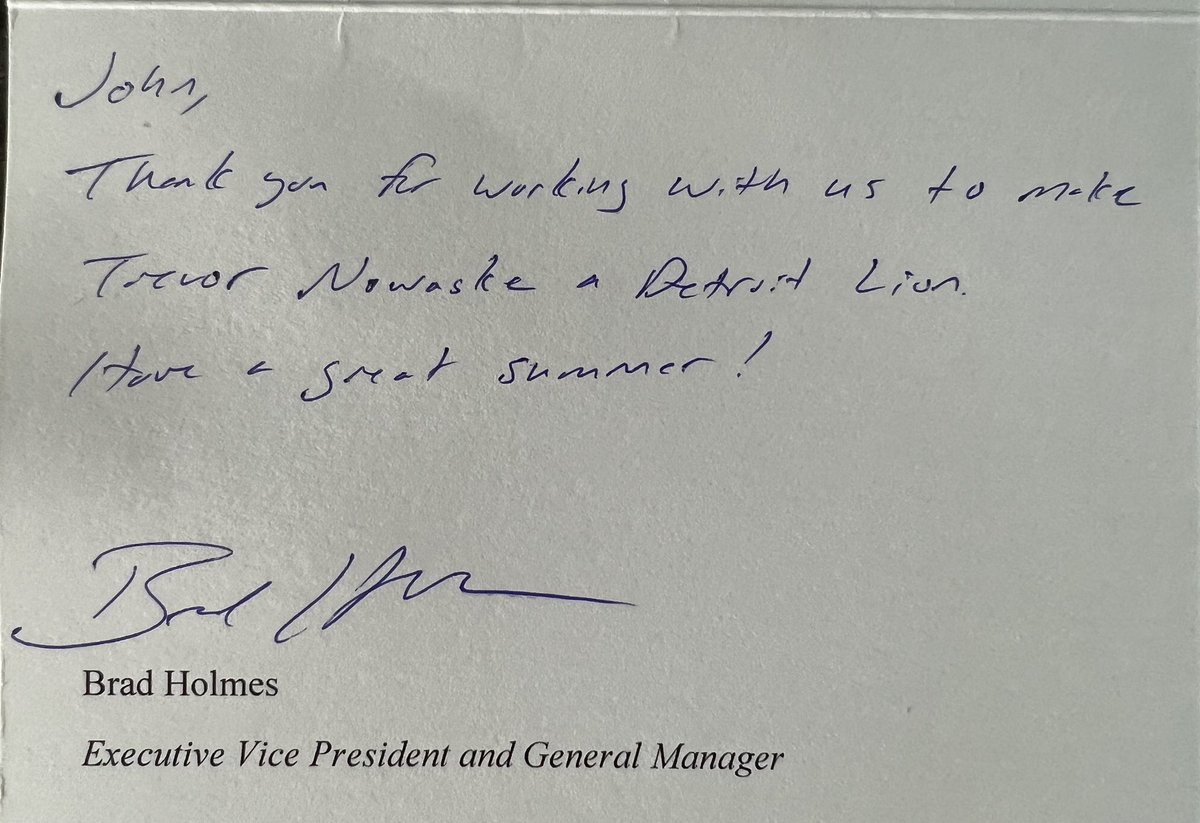 John,
Thank you for working with us to make
Trevor Nowaske a Detroit Lion.
Have a great summer!
Brad Holmes
Brad Holmes
Executive Vice President and General Manager